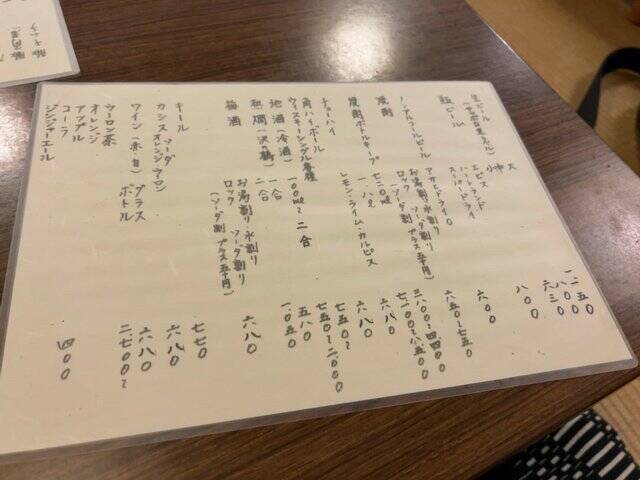 生ビール 大 一、二五〇
（サッポロ黒ラベル） 中 八〇〇
小 六三〇
瓶ビール エビス 八〇〇
ハートランド
スーパードライ
ノンアルコールビール アサヒドライゼロ 六〇〇
焼酎 お湯割り・水割り 六五〇〜七五〇
ロック ソーダ割り
（ソーダ割 プラス五十円）
焼酎ボトルキープ 七二〇ml 三八〇〇〜四四〇〇
一.八l 七、一〇〇〜八、五〇〇
チューハイ レモン・ライム・カルピス 六八〇
角ハイボール 六八〇
ウイスキーシングル各種 七五〇〜
地酒（冷酒） 一〇〇ml〜二合 七五〇〜二〇〇〇
熱燗（沢の鶴） 一合 五八〇
二合 一、〇五〇
梅酒 お湯割り・水割り 六八〇
ロック ソーダ割り
（ソーダ割 プラス五十円）
キール 七七〇
カシス ソーダ 六八〇
オレンジ・ウーロン
ワイン（赤・白） グラス 六八〇
ボトル 二、七〇〇〜
ウーロン茶 四〇〇
オレンジ
アップル
コーラ
ジンジャーエール